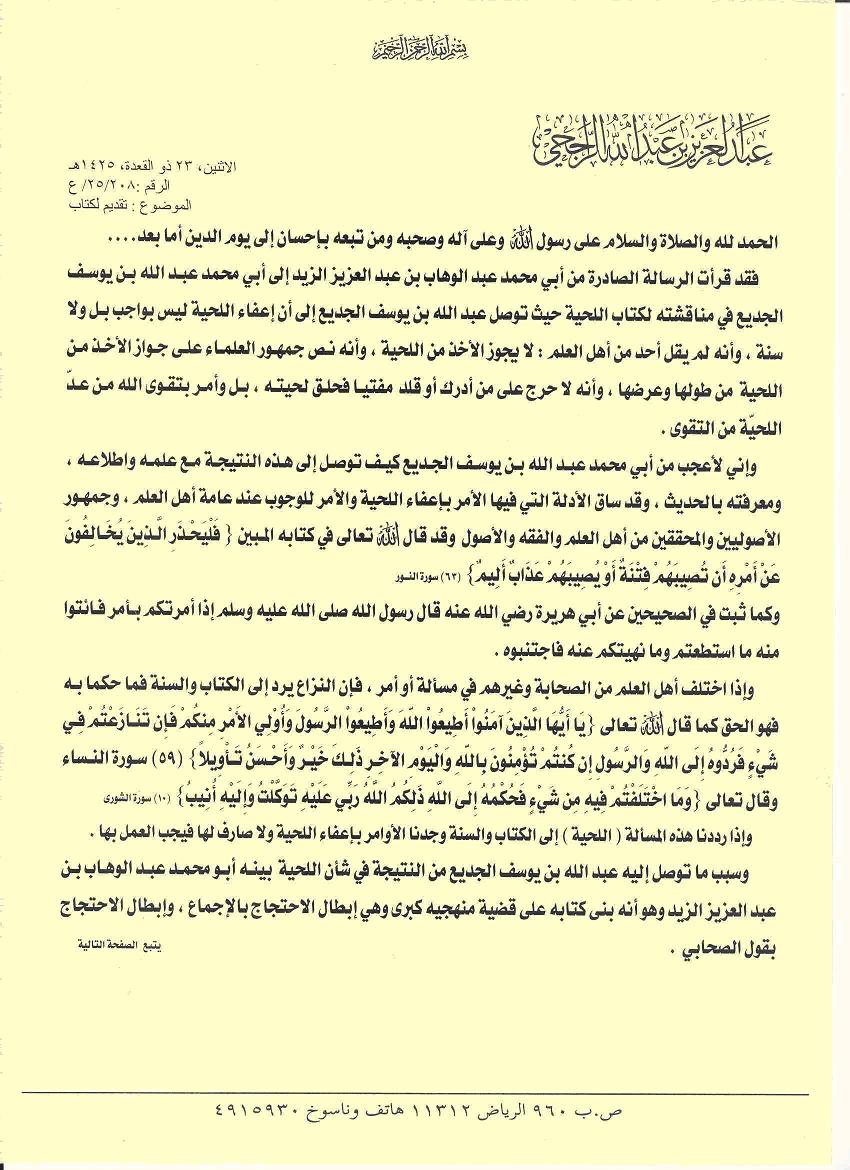 بسم الله الرحمن الرحيم
عبد العزيز بن عبد الله الراجحي
الاثنين، ٢٣ ذو القعدة، ١٤٢٥هـ
الرقم :٢٥/٢٠٨/ ع
الموضوع : تقديم لكتاب
الحمد لله والصلاة والسلام على رسول الله وعلى آله وصحبه ومن تبعه بإحسان إلى يوم الدين أما بعد....
فقد قرأت الرسالة الصادرة من أبي محمد عبد الوهاب بن عبد العزيز الزيد إلى أبي محمد عبد الله بن يوسف
الجديع في مناقشته لكتاب اللحية حيث توصل عبد الله بن يوسف الجديع إلى أن إعفاء اللحية ليس بواجب بل ولا
سنة ، وأنه لم يقل أحد من أهل العلم : لا يجوز الأخذ من اللحية ، وأنه نص جمهور العلماء على جواز الأخذ من
اللحية من طولها وعرضها ، وأنه لا حرج على من أدرك أو قلد مفتيا فحلق لحيته ، بل وأمر بتقوى الله من عدّ
اللحيّة من التقوى .
وإني لأعجب من أبي محمد عبد الله بن يوسف الجديع كيف توصل إلى هذه النتيجة مع علمه واطلاعه ،
ومعرفته بالحديث ، وقد ساق الأدلة التي فيها الأمر بإعفاء اللحية والأمر للوجوب عند عامة أهل العلم ، وجمهور
الأصوليين والمحققين من أهل العلم والفقه والأصول وقد قال الله تعالى في كتابه المبين { فَلْيَحْذَرِ الَّذِينَ يُخَالِفُونَ
عَنْ أَمْرِهِ أَن تُصِيبَهُمْ فِتْنَةٌ أَوْ يُصِيبَهُمْ عَذَابٌ أَلِيمٌ} (٦٣) سورة النور
وكما ثبت في الصحيحين عن أبي هريرة رضي الله عنه قال رسول الله صلى الله عليه وسلم إذا أمرتكم بأمر فائتوا
منه ما استطعتم وما نهيتكم عنه فاجتنبوه .
وإذا اختلف أهل العلم من الصحابة وغيرهم في مسألة أو أمر ، فإن النزاع يرد إلى الكتاب والسنة فما حكما به
فهو الحق كما قال الله تعالى {يَا أَيُّهَا الَّذِينَ آمَنُواْ أَطِيعُواْ اللّهَ وَأَطِيعُواْ الرَّسُولَ وَأُوْلِي الأَمْرِ مِنكُمْ فَإِن تَنَازَعْتُمْ فِي
شَيْءٍ فَرُدُّوهُ إِلَى اللّهِ وَالرَّسُولِ إِن كُنتُمْ تُؤْمِنُونَ بِاللّهِ وَالْيَوْمِ الآخِرِ ذَلِكَ خَيْرٌ وَأَحْسَنُ تَأْوِيلاً} (٥٩) سورة النساء
وقال تعالى {وَمَا اخْتَلَفْتُمْ فِيهِ مِن شَيْءٍ فَحُكْمُهُ إِلَى اللَّهِ ذَلِكُمُ اللَّهُ رَبِّي عَلَيْهِ تَوَكَّلْتُ وَإِلَيْهِ أُنِيبُ} (١٠) سورة الشورى
وإذا رددنا هذه المسألة ( اللحية ) إلى الكتاب والسنة وجدنا الأوامر بإعفاء اللحية ولا صارف لها فيجب العمل بها .
وسبب ما توصل إليه عبد الله بن يوسف الجديع من النتيجة في شأن اللحية بينه أبو محمد عبد الوهاب بن
عبد العزيز الزيد وهو أنه بنى كتابه على قضية منهجيه كبرى وهي إبطال الاحتجاج بالإجماع ، وإبطال الاحتجاج
بقول الصحابي .
يتبع الصفحة التالية
ص.ب ٩٦٠ الرياض ١١٣١٢ هاتف وناسوخ ٤٩١٥٩٣٠